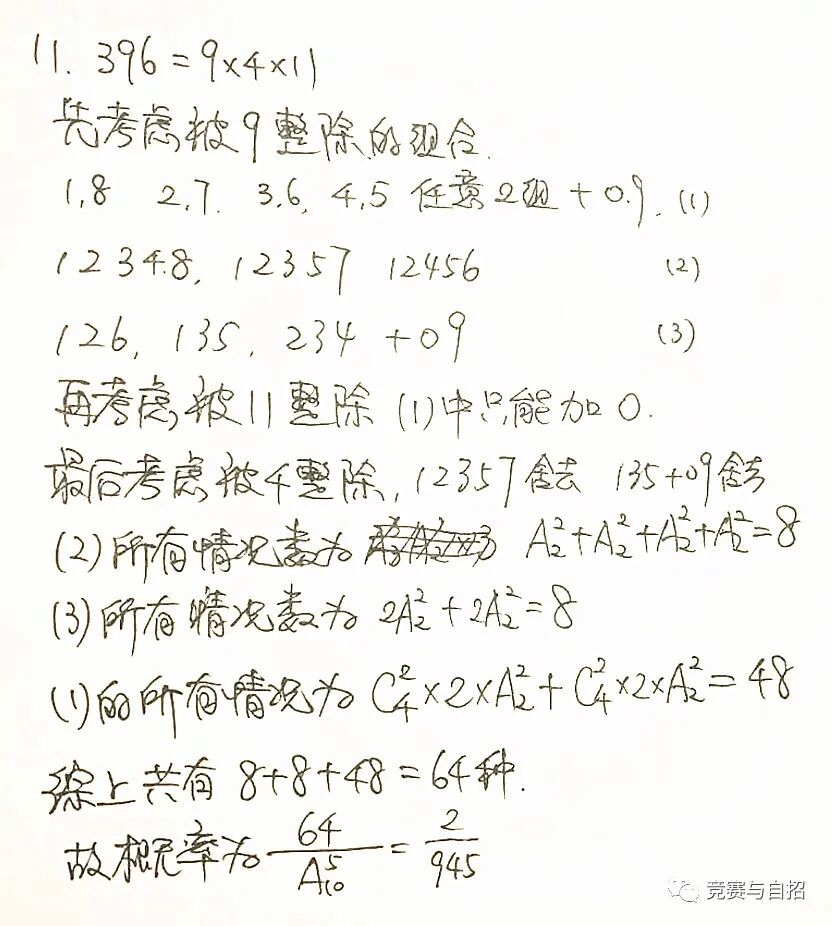 11. 396=9×4×11
先考虑被9整除的组合.
1,8 2,7. 3,6, 4,5 任意2组+0.9. (1)
12348, 12357 12456 (2)
126, 135, 234 +09 (3)
再考虑被11整除 (1)中只能加0.
最后考虑被4整除, 12357舍去 135+09舍去
(2)所有情况数为 A₂²+A₂²+A₂²+A₂²=8
(3)所有情况数为 2A₂²+2A₂²=8
(1)的所有情况为 C₄²×2×A₂²+C₄²×2×A₂²=48
综上共有 8+8+48=64种.
故概率为 64/A₁₀⁵ = 2/945
竞赛与自招